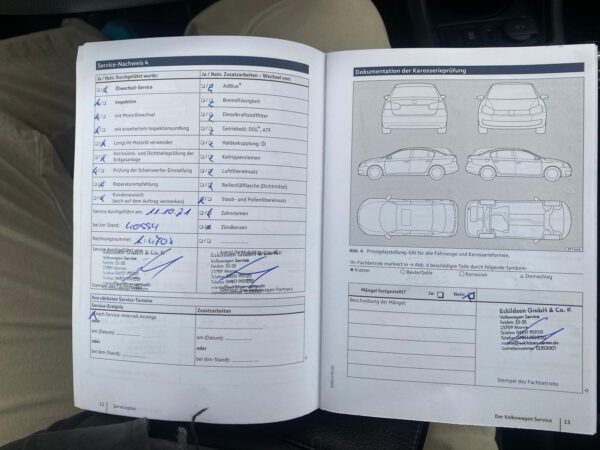 Service-Nachweis 4
Ja / Nein. Durchgeführt wurde:
Ja / Nein. Zusatzarbeiten – Wechsel von:
Ölwechsel-Service
AdBlue®
Inspektion
Bremsflüssigkeit
mit Motorölwechsel
Dieselkraftstofffilter
mit erweitertem Inspektionsumfang
Getriebeöl: DSG®, ATF
LongLife Motoröl verwendet
Haldexkupplung: Öl
Korrosions- und Dichtheitsprüfung der Abgasanlage
Keilrippenriemen
Prüfung der Scheinwerfer-Einstellung
Luftfiltereinsatz
Reparaturempfehlung
Reifenfüllflasche (Dichtmittel)
Kundenwunsch
(auch auf dem Auftrag vermerken)
Staub- und Pollenfiltereinsatz
Service durchgeführt am: 11.10.21
Zahnriemen
bei km-Stand: 40554
Zündkerzen
Rechnungsnummer:
Eskildsen GmbH & Co. K
Volkswagen Service
25709 Marne
Eskildsen GmbH & Co. K
Volkswagen Service
25709 Marne
Ihre nächsten Service-Termine
Service-Ereignis
Zusatzarbeiten
nach Service-Intervall-Anzeige
oder
am (Datum):
oder
bei (km-Stand):
am (Datum):
oder
bei (km-Stand):
12 Serviceplan
Dokumentation der Karosserieprüfung
Abb. 6 Prinzipdarstellung: Gilt für alle Fahrzeuge und Karosserieformen.
Ihr Fachbetrieb markiert in → Abb. 6 beschädigte Teile durch folgende Symbole:
× Kratzer ○ Beule/Delle □ Korrosion △ Steinschlag
Mängel festgestellt? Ja Nein
Beschreibung der Mängel:
Eskildsen GmbH & Co. K
Volkswagen Service
25709 Marne
Stempel des Fachbetriebs
Der Volkswagen Service 13